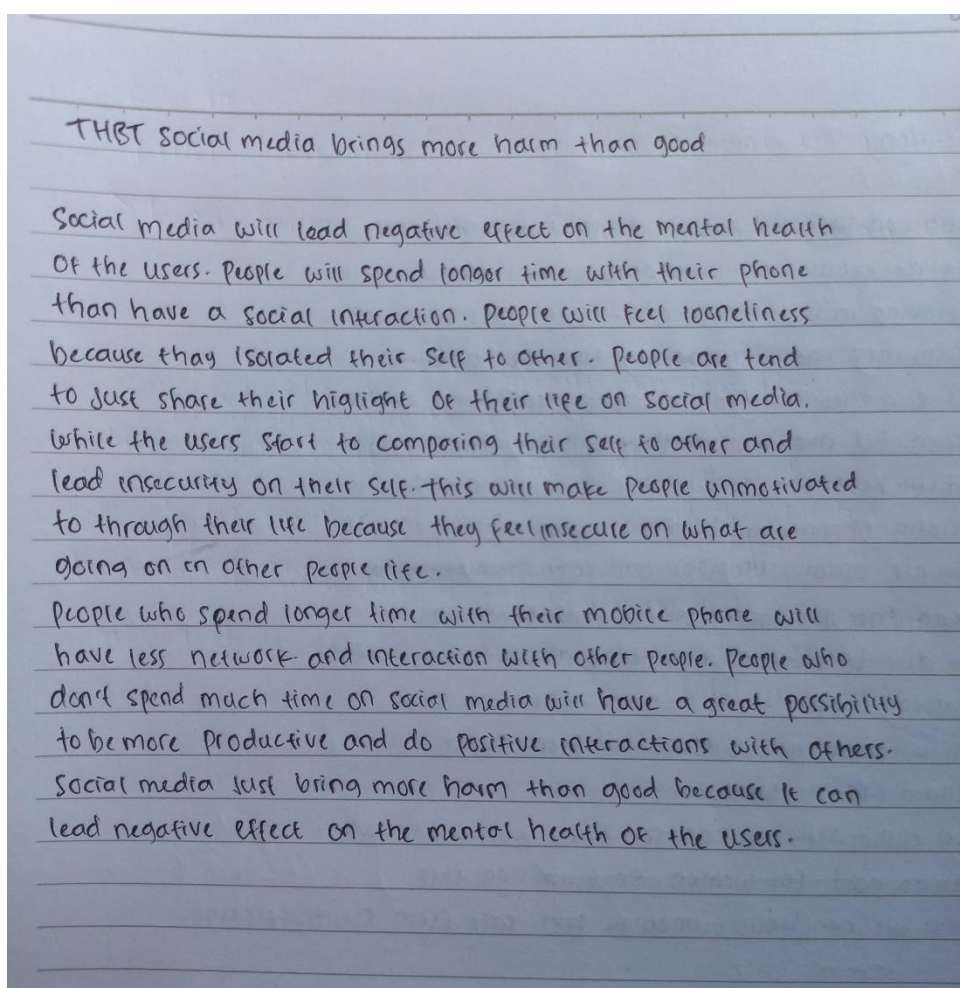 THBT social media brings more harm than good
Social media will lead negative effect on the mental health
Of the users. People will spend longer time with their phone
than have a social interaction. People will feel looneliness
because thay isolated their self to other. People are tend
to Just share their higlight of their life on social media.
While the users start to comparing their self to other and
lead insecurity on their self. this will make people unmotivated
to through their life because they feel insecure on what are
going on in other people life.
People who spend longer time with their mobile phone will
have less network and interaction with other people. People who
don't spend much time on social media will have a great possibility
to be more productive and do positive interactions with others.
Social media Just bring more harm than good because it can
lead negative effect on the mental health of the users.